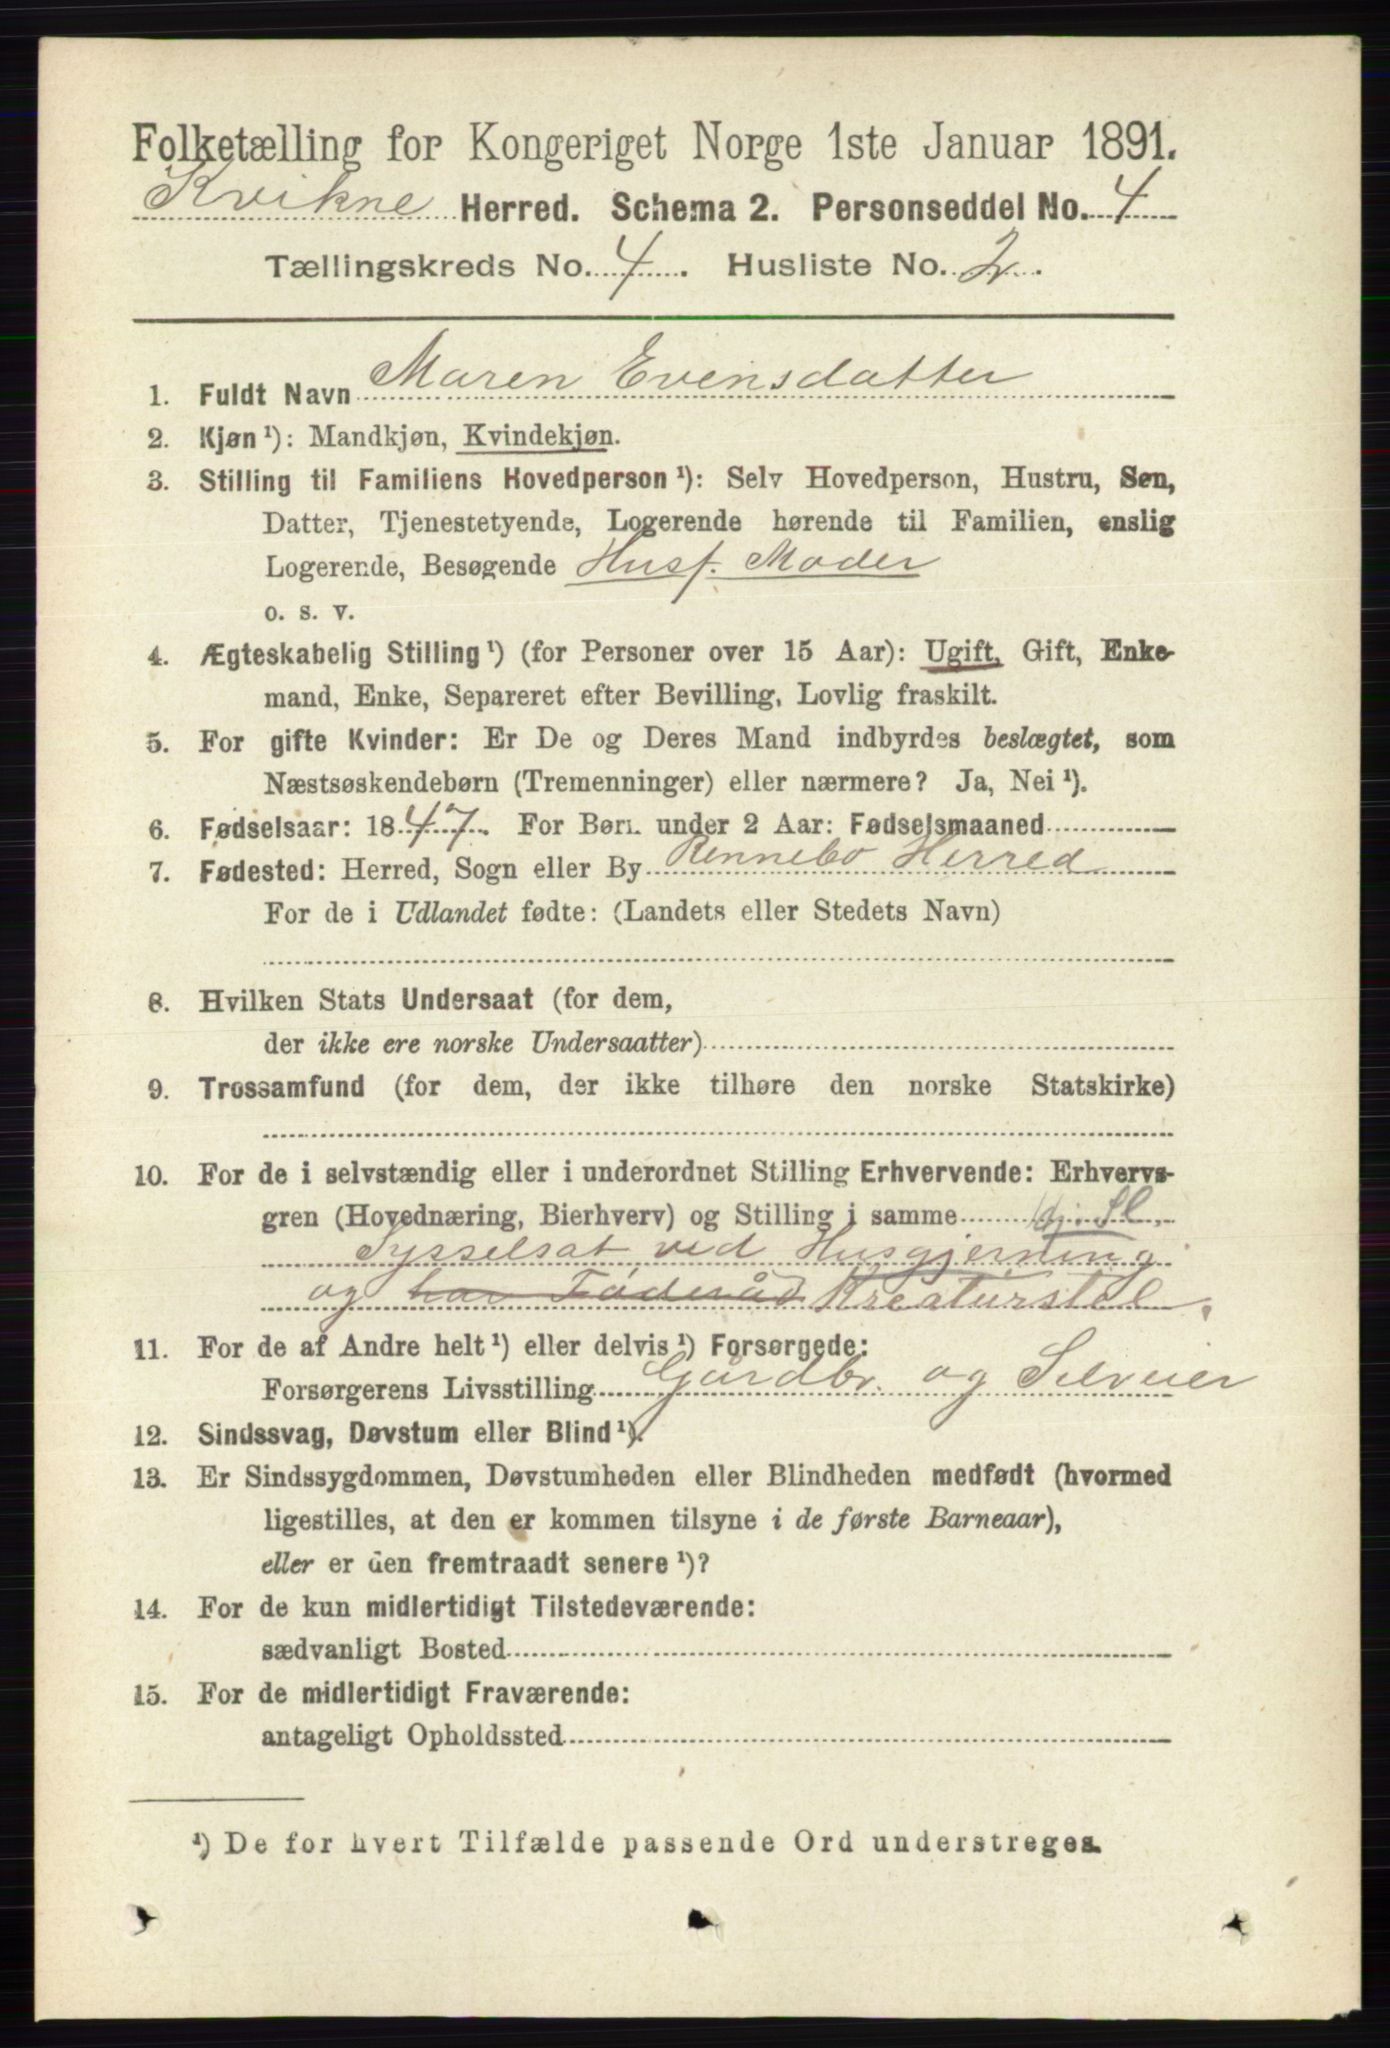 Folketælling for Kongeriget Norge 1ste Januar 1891.
Kvikne Herred. Schema 2. Personseddel No. 4
Tællingskreds No. 4. Husliste No. 2.
1. Fuldt Navn Maren Evensdatter
2. Kjøn ¹): Mandkjøn, Kvindekjøn.
3. Stilling til Familiens Hovedperson ¹): Selv Hovedperson, Hustru, Søn,
Datter, Tjenestetyende, Logerende hørende til Familien, enslig
Logerende, Besøgende Husf. Moder
o. s. v.
4. Ægteskabelig Stilling ¹) (for Personer over 15 Aar): Ugift, Gift, Enke-
mand, Enke, Separeret efter Bevilling, Lovlig fraskilt.
5. For gifte Kvinder: Er De og Deres Mand indbyrdes beslægtet, som
Næstsøskendebørn (Tremenninger) eller nærmere? Ja, Nei ¹).
6. Fødselsaar: 1847. For Børn under 2 Aar: Fødselsmaaned
7. Fødested: Herred, Sogn eller By Rennebo Herred
For de i Udlandet fødte: (Landets eller Stedets Navn)
8. Hvilken Stats Undersaat (for dem,
der ikke ere norske Undersaatter)
9. Trossamfund (for dem, der ikke tilhøre den norske Statskirke)
10. For de i selvstændig eller i underordnet Stilling Erhvervende: Erhvervs-
gren (Hovednæring, Bierhverv) og Stilling i samme
Sysselsat ved Husgjerning
og har Føderåd Kreaturstel.
11. For de af Andre helt ¹) eller delvis ¹) Forsørgede:
Forsørgerens Livsstilling Gårdbr. og Selveier
12. Sindssvag, Døvstum eller Blind ¹).
13. Er Sindssygdommen, Døvstumheden eller Blindheden medfødt (hvormed
ligestilles, at den er kommen tilsyne i de første Barneaar),
eller er den fremtraadt senere ¹)?
14. For de kun midlertidigt Tilstedeværende:
sædvanligt Bosted
15. For de midlertidigt Fraværende:
antageligt Opholdssted
¹) De for hvert Tilfælde passende Ord understreges.